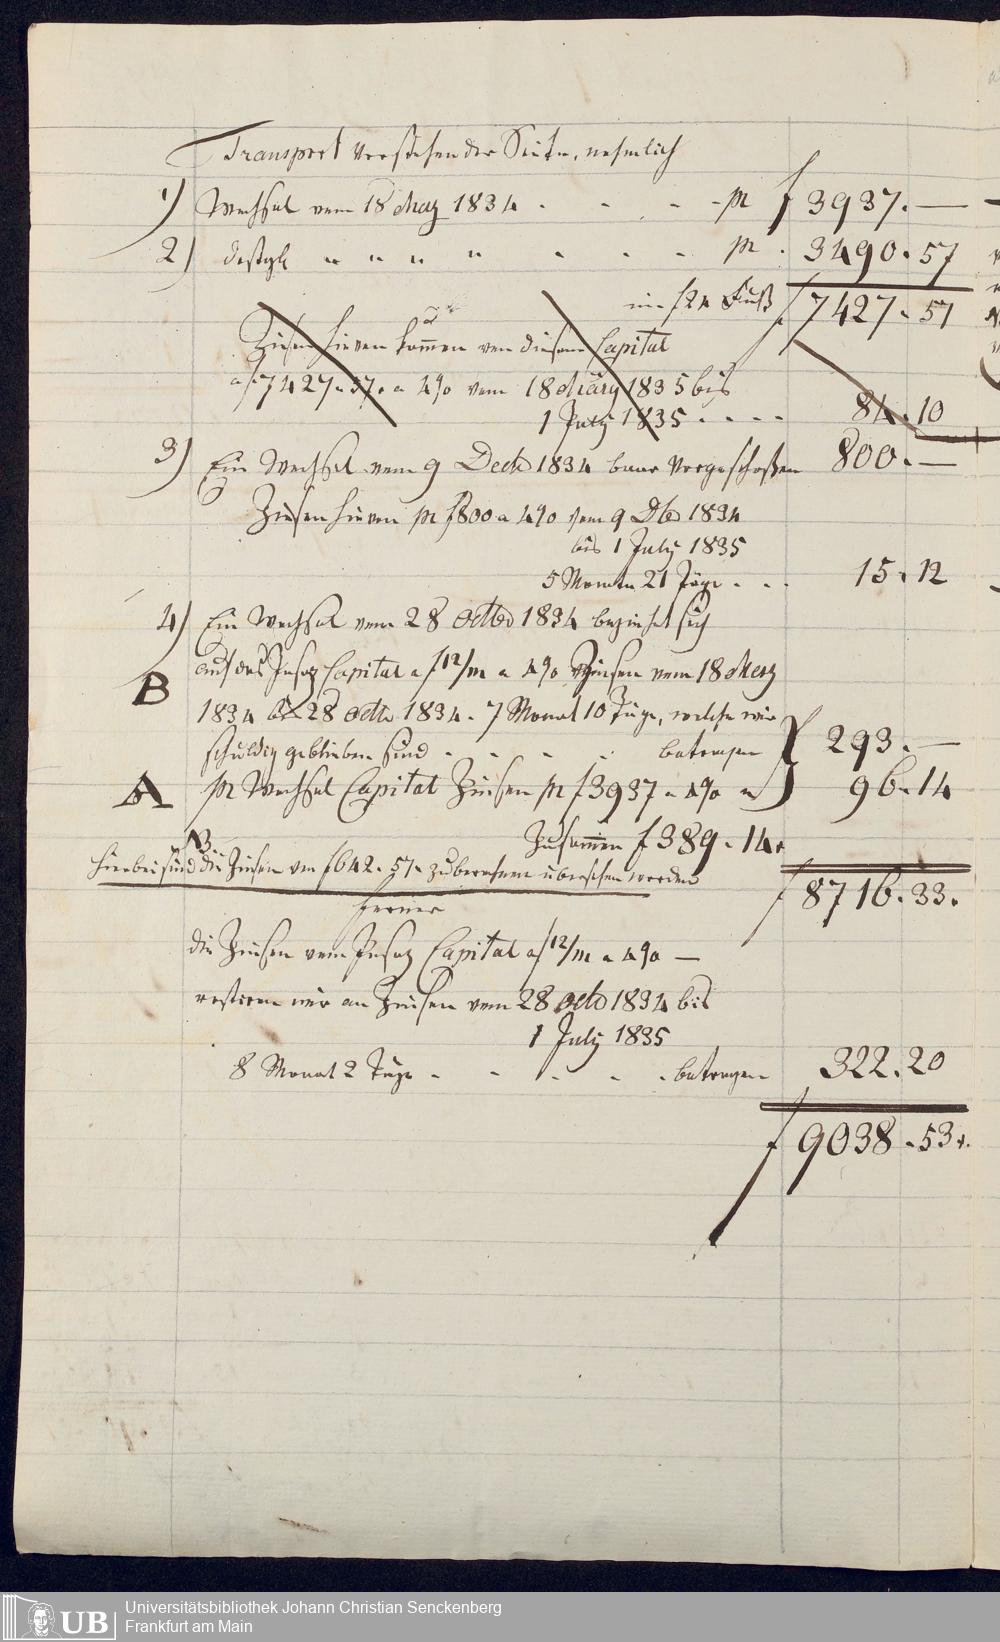 Transport vorstehender Seite, nehmlich
1) Wechsel vom 18 May 1834 . - - - pr f 3937. —
2) dessgl. " " " " - - - pr . 3490. 57
im f 24 Fuß f 7427. 57
Zinsen hievon kommen von diesem Capital
a f 7427. 57. a 4% vom 18 März 1835 bis
1 July 1835 . . . . 84. 10
3) Ein Wechsel vom 9 Decb 1834 baar vorgeschoßen 800. —
Zinsen hievon pr f 800 a 4% vom 9 Db 1834
bis 1 July 1835
5 Monate 21 Täge . . . 15. 12
4) Ein Wechsel vom 28 Octbr 1834 beziehet sich
auf das Insaz Capital a f 12/m a 4% Zinsen vom 18 Merz
B
1834 bis 28 octb 1834. 7 Monat 10 Täge, welche wir
schuldig geblieben sind - - - . betragen 293. —
A pr Wechsel Capital Zinsen pr f 3937 a 4% 96. 14
Zusammen f 389. 14.
NB.
hierbei sind die Zinsen von f 642. 51 zu berechnen übersehen worden
f 8716. 33.
ferner
die Zinsen vom Insaz Capital a f 12/m a 4% —
restiren wir an Zinsen vom 28 octb 1834 bis
1 July 1835
8 Monat 2 Täge - - - - . betragen 322. 20
f 9038. 53.
UB Universitätsbibliothek Johann Christian Senckenberg
Frankfurt am Main